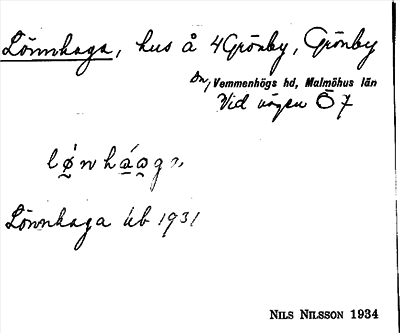 Lönnhaga, hus å 4 Grönby, Grönby
sn, Vemmenhögs hd, Malmöhus län
Vid vägen Ö 7
Lönnhaga Ub 1931
NILS NILSSON 1934